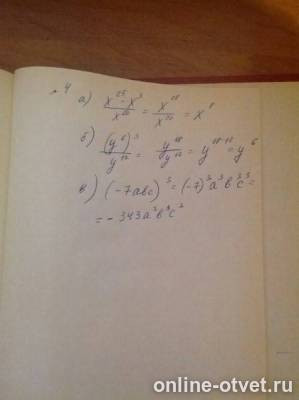 4 а) x²⁵ · x³ / x²⁰ = x²⁸ / x²⁰ = x⁸
б) (y⁶)³ / y¹² = y¹⁸ / y¹² = y¹⁸⁻¹² = y⁶
в) (-7abc)³ = (-7)³a³b³c³ =
= -343a³b³c³
online-otvet.ru